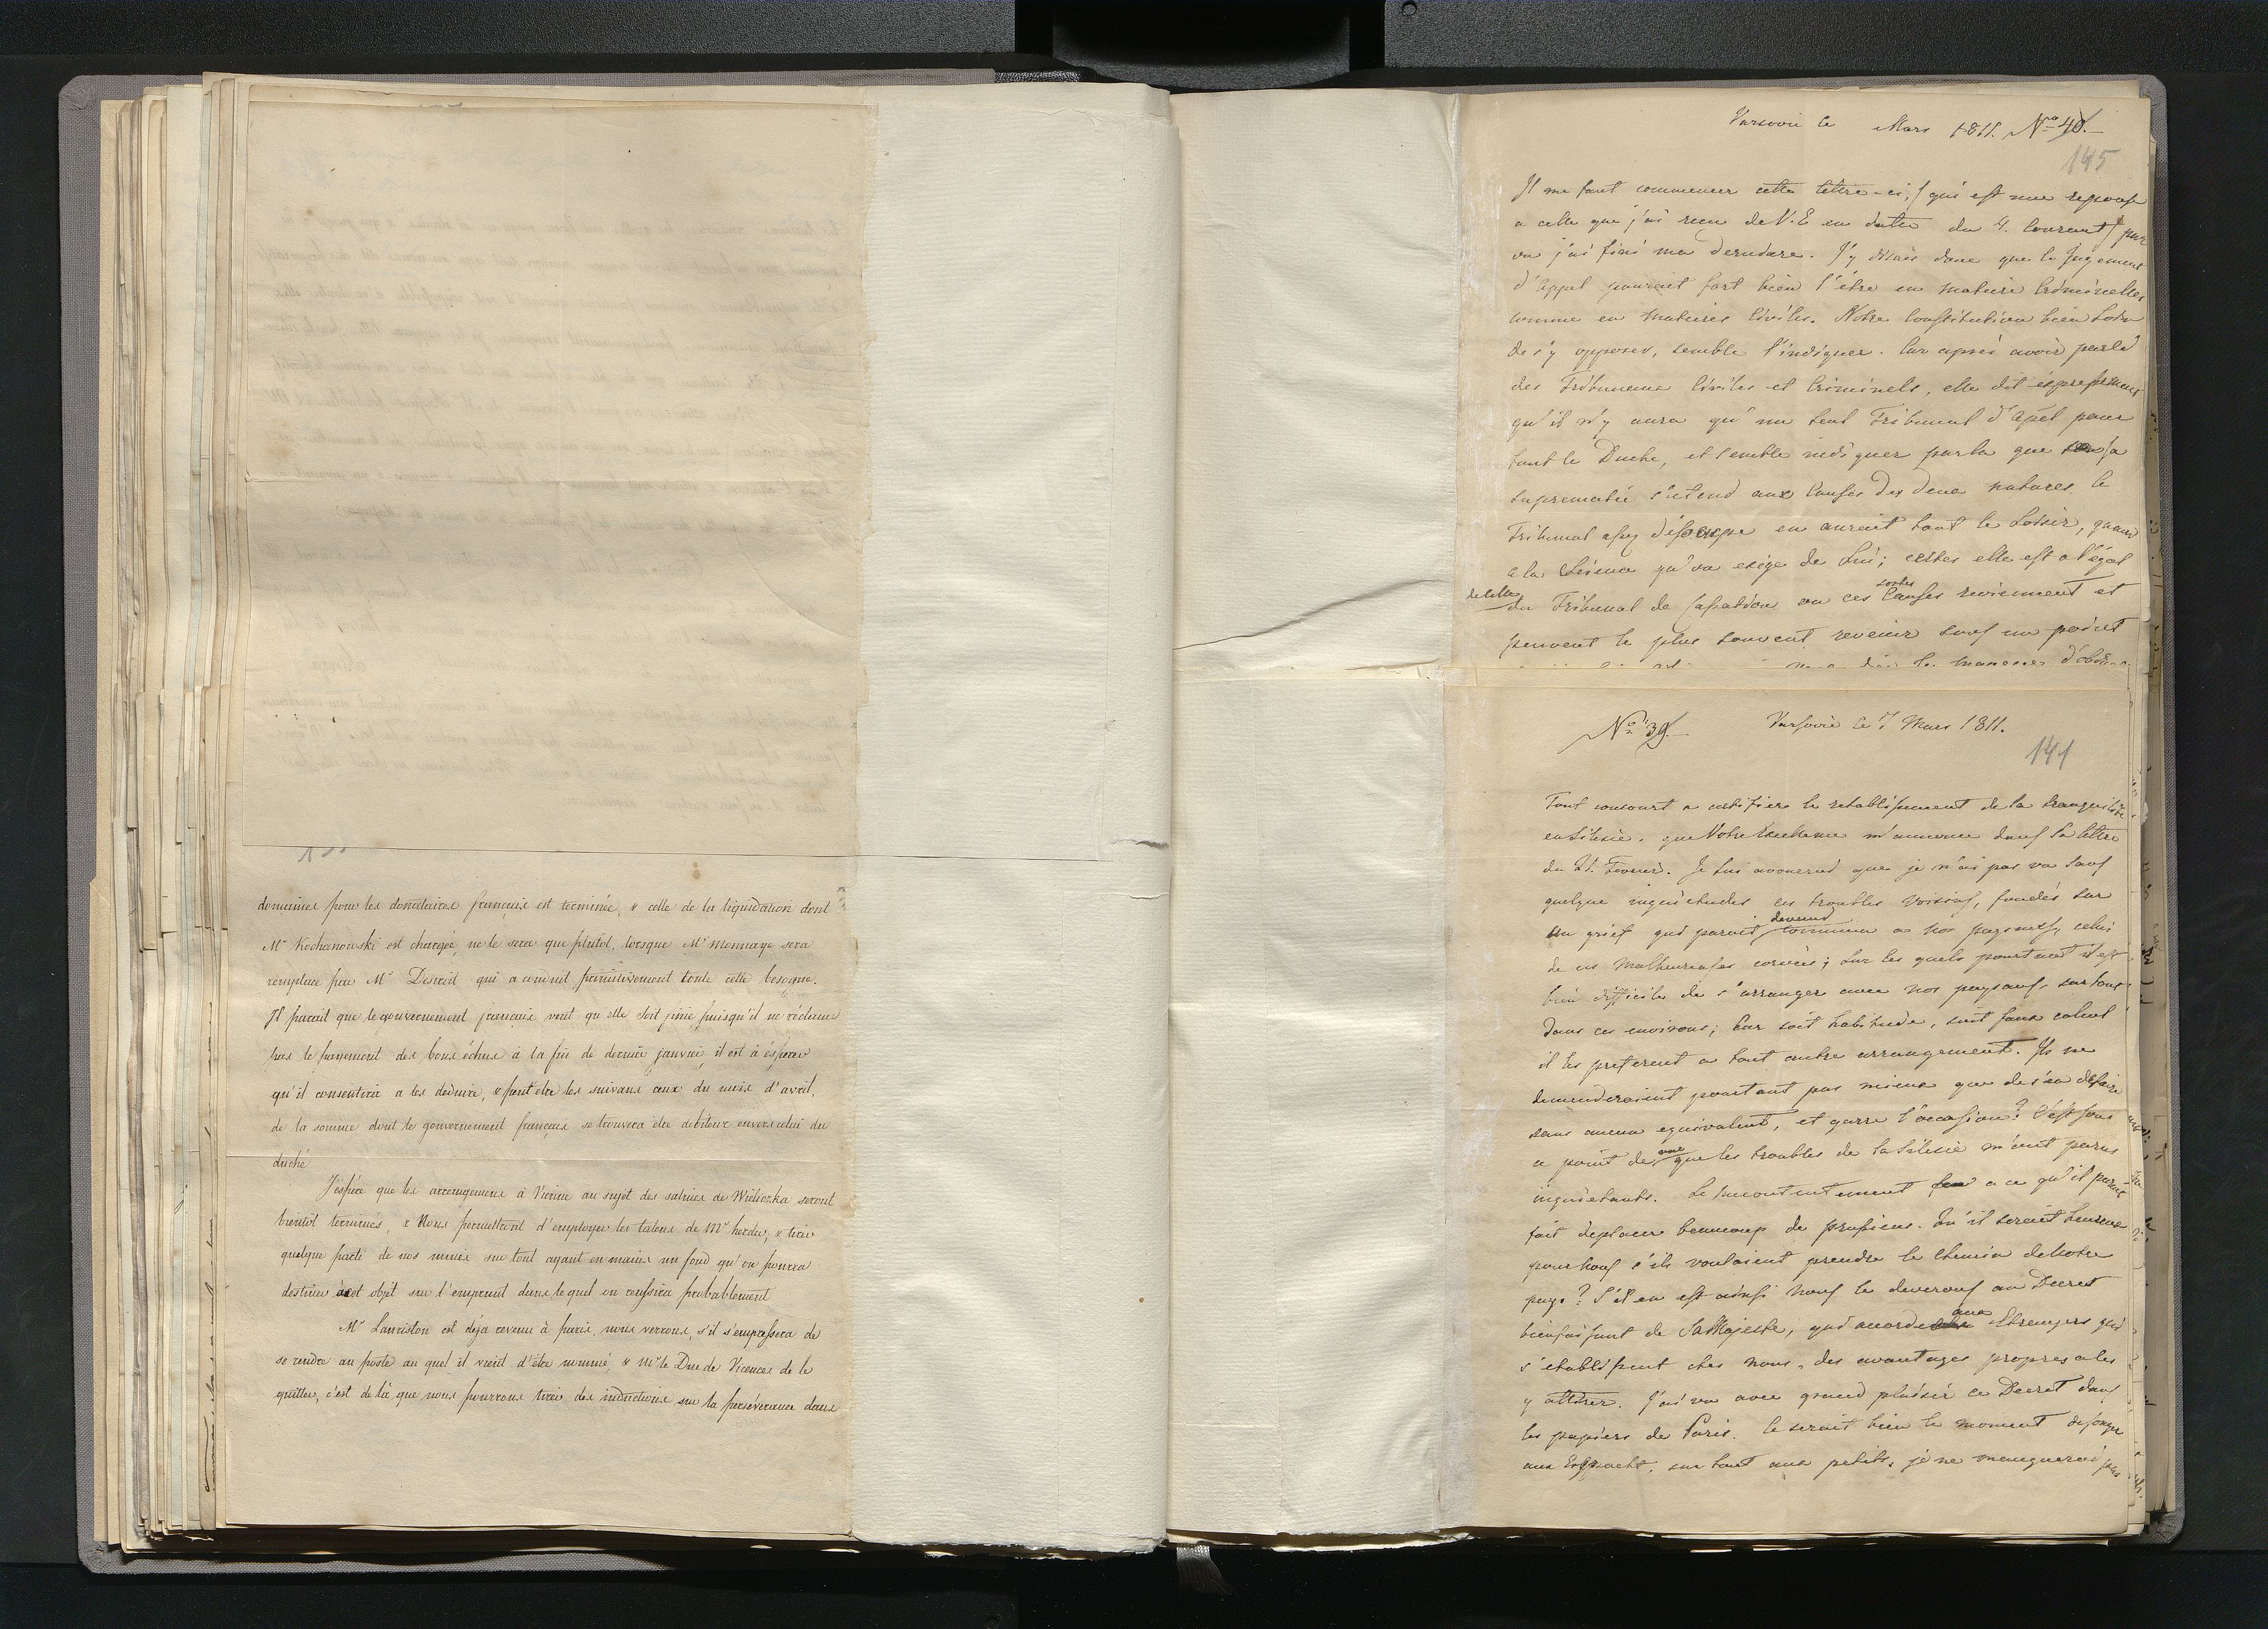 domaines pour les donataires français est terminée, & celle de la liquidation dont
Mr Kochanowski est chargée, ne le sera que plutôt, lorsque Mr Monnaye sera
remplacé par Mr Desirat qui a conduit primitivement toute cette besogne.
Il parait que le gouvernement français veut qu'elle soit finie puisqu'il ne réclame
pas le payement des bons échus à la fin de dernier janvier, il est à éspérer
qu'il consentira a les déduire, & peut etre les suivans ceux du mois d'avril,
de la somme dont le gouvernement français se trouvera être debiteur envers celui du
duché
J'éspère que les arrangemens à Vienne au sujet des salines de Wieliczka seront
bientôt terminés, & Nous permettront d'employer les talens de Mr herder, & tirer
quelque parti de nos mines sur tout ayant en mains un fond qu'on pourra
destiner à cet objet sur l'emprunt dans lequel on reussira probablement
Mr Lauriston est déja revenu à paris, nous verrons, s'il s'empressera de
se rendre au poste au quel il vient d'être nommé, & Mr le Duc de Vicence de le
quitter, c'est de là que nous pourrons tirer des inductions sur la persévérance dans
Varsovie le Mars 1811. No 40.
145
Il me faut commencer cette lettre-ci, (qui est une reponse
a celle que j'ai reçu de V.E en datte du 4. Courant) par
ou j'ai fini ma derniere. J'y disais donc que le Jugement
d'appel pouroit fort bien l'être en matiere Criminelles
comme en matieres Civiles. Notre Constitution bien Loin
de s'y opposer, semble l'indiquer. Car après avoir parlé
des Tribuneaux Civiles et Criminels, elle dit expressement
qu'il n'y aura qu'un seul Tribunal d'Apel pour
tout le Duché, et semble indiquer par la que sa
suprematie s'etend aux Causes des deux natures. le
Tribunal assez en auroit tout le Loisir, quand
a la Science qu'on exige de Lui; certes elle est a l'égal
de celle du Tribunal de Cassation ou ces sortes Causes reviennent et
peuvent le plus souvent revenir sous un point
No 39. Varsovie le 7. Mars 1811.
141
Tout concourt a certifier le retablissement de la tranquilité
en Silesie, que Votre Excellence m'annonce dans Sa lettre
du 21. Fevrier. Je Lui avouerai que je n'ai pas vu sans
quelque inquietudes ces troubles voisins, fondés sur
un grief qui paroit devenir commun a nos paysans, celui
de ces Malheureuses corvées; sur les quels pourtant il est
bien difficile de s'arranger avec nos paysans, sur tout
dans ces environs; Car soit habitude, soit faux calcul
il les preferent a tout autre arrangement. Ils ne
demanderoient pourtant pas mieux que de s'en défaire
sans aucun equivalent, et garre l'occasion! C'est sous
ce point de vue que les troubles de la Silesie m'ont parus
inquietants. Le mecontentement a ce qu'il paroit
fait deplacer beaucoup de prussiens. Qu'il seroit heureux
pour nous s'ils vouloient prendre le Chemin de Notre
pays? S'il en est ainsi nous le deverons au Decret
bienfaisant de Sa Majesté, qui accorde aux Etrangers qui
s'etablissent chez nous, des avantages propres a les
y attirer. J'ai vu avec grand plaisir ce Decret dans
les papiers de Paris. Ce seroit bien le moment de songer
aux , sur tout aux petits, je ne manquerai pas